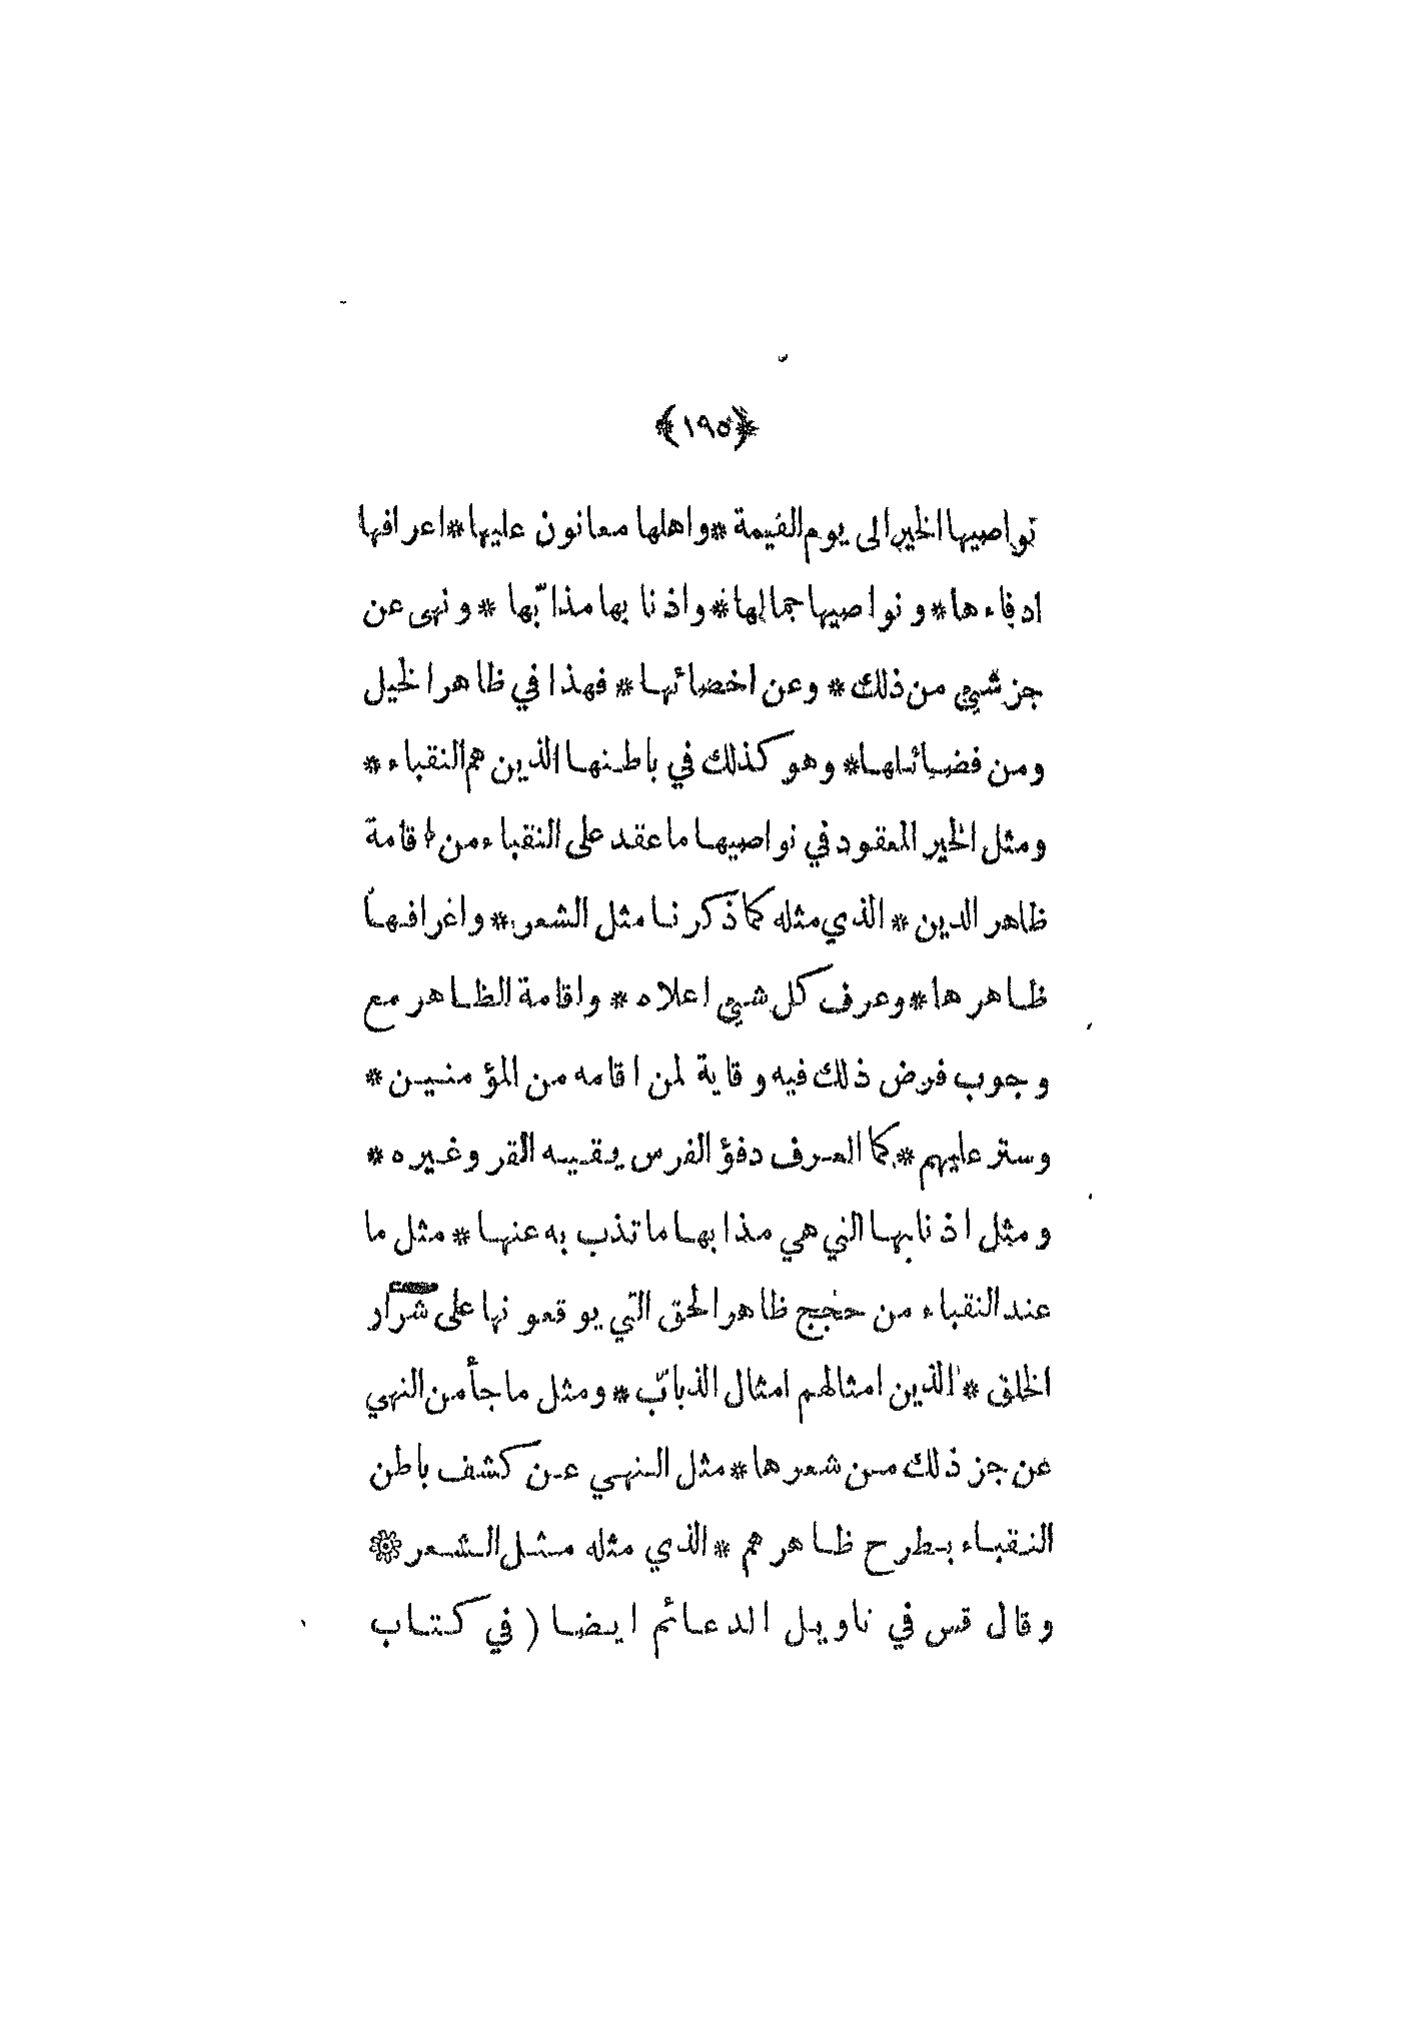 ﴿١٩٥﴾
نواصيها الخير الى يوم القيمة * واهلها معانون عليها * اعرافها
ادفاءها * ونواصيها جمالها * واذنابها مذابّها * ونهى عن
جز شيئ من ذلك * وعن اخضائها * فهذا في ظاهر الخيل
ومن فضائلها * وهو كذلك في باطنها الذين هم النقباء *
ومثل الخير المعقود في نواصيها ما عقد على النقباء من اقامة
ظاهر الدين * الذي مثله كما ذكرنا مثل الشعر * واغرافها
ظاهرها * وعرف كل شيئ اعلاه * واقامة الظاهر مع
وجوب فرض ذلك فيه وقاية لمن اقامه من المؤمنين *
وستر عليهم * كما العرف دفؤ الفرس يقيه القر وغيره *
ومثل اذنابها التي هي مذابها ما تذب به عنها * مثل ما
عند النقباء من حجج ظاهر الحق التي يوقعونها على شرار
الخلق * الذين امثالهم امثال الذباب * ومثل ما جأ من النهي
عن جز ذلك من شعرها * مثل النهي عن كشف باطن
النقباء بطرح ظاهرهم * الذي مثله مثل الشعر *
وقال قس في تاويل الدعائم ايضا ( في كتاب